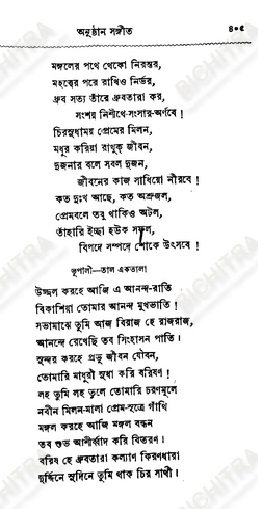 অনুষ্ঠান সঙ্গীত ৪০৫
মঙ্গলের পথে থেকো নিরন্তর,
মহত্ত্বের পরে রাখিও নির্ভর,
ধ্রুব সত্য তাঁরে ধ্রুবতারা কর,
সংশয় নিশীথে-সংসার-অর্ণবে !
চিরসুধাময় প্রেমের মিলন,
মধুর করিয়া রাখুক্ জীবন,
দুজনার বলে সবল দুজন,
জীবনের কাজ সাধিয়ো নীরবে !
কত দুঃখ আছে, কত অশ্রুজল,
প্রেমবলে তবু থাকিও অটল,
তাঁহারি ইচ্ছা হউক সফল,
বিপদে সম্পদে শোকে উৎসবে !
ভূপালী—তাল একতালা
উজ্জ্বল করহে আজি এ আনন্দ-রাতি
বিকাশিয়া তোমার আনন্দ মুখভাতি !
সভামাঝে তুমি আজ বিরাজ হে রাজরাজ,
আনন্দে রেখেছি তব সিংহাসন পাতি।
সুন্দর করহে প্রভু জীবন যৌবন,
তোমারি মাধুরী সুধা করি বরিষণ !
লহ তুমি লহ তুলে তোমারি চরণমূলে
নবীন মিলন-মালা প্রেম-সূত্রে গাঁথি
মঙ্গল করহে আজি মঙ্গল বন্ধন
তব শুভ আশীর্ব্বাদ করি বিতরণ !
বরিষ হে ধ্রুবতারা কল্যাণ কিরণধারা
দুর্দ্দিনে সুদিনে তুমি থাক চির সাথী।
BICHITRA